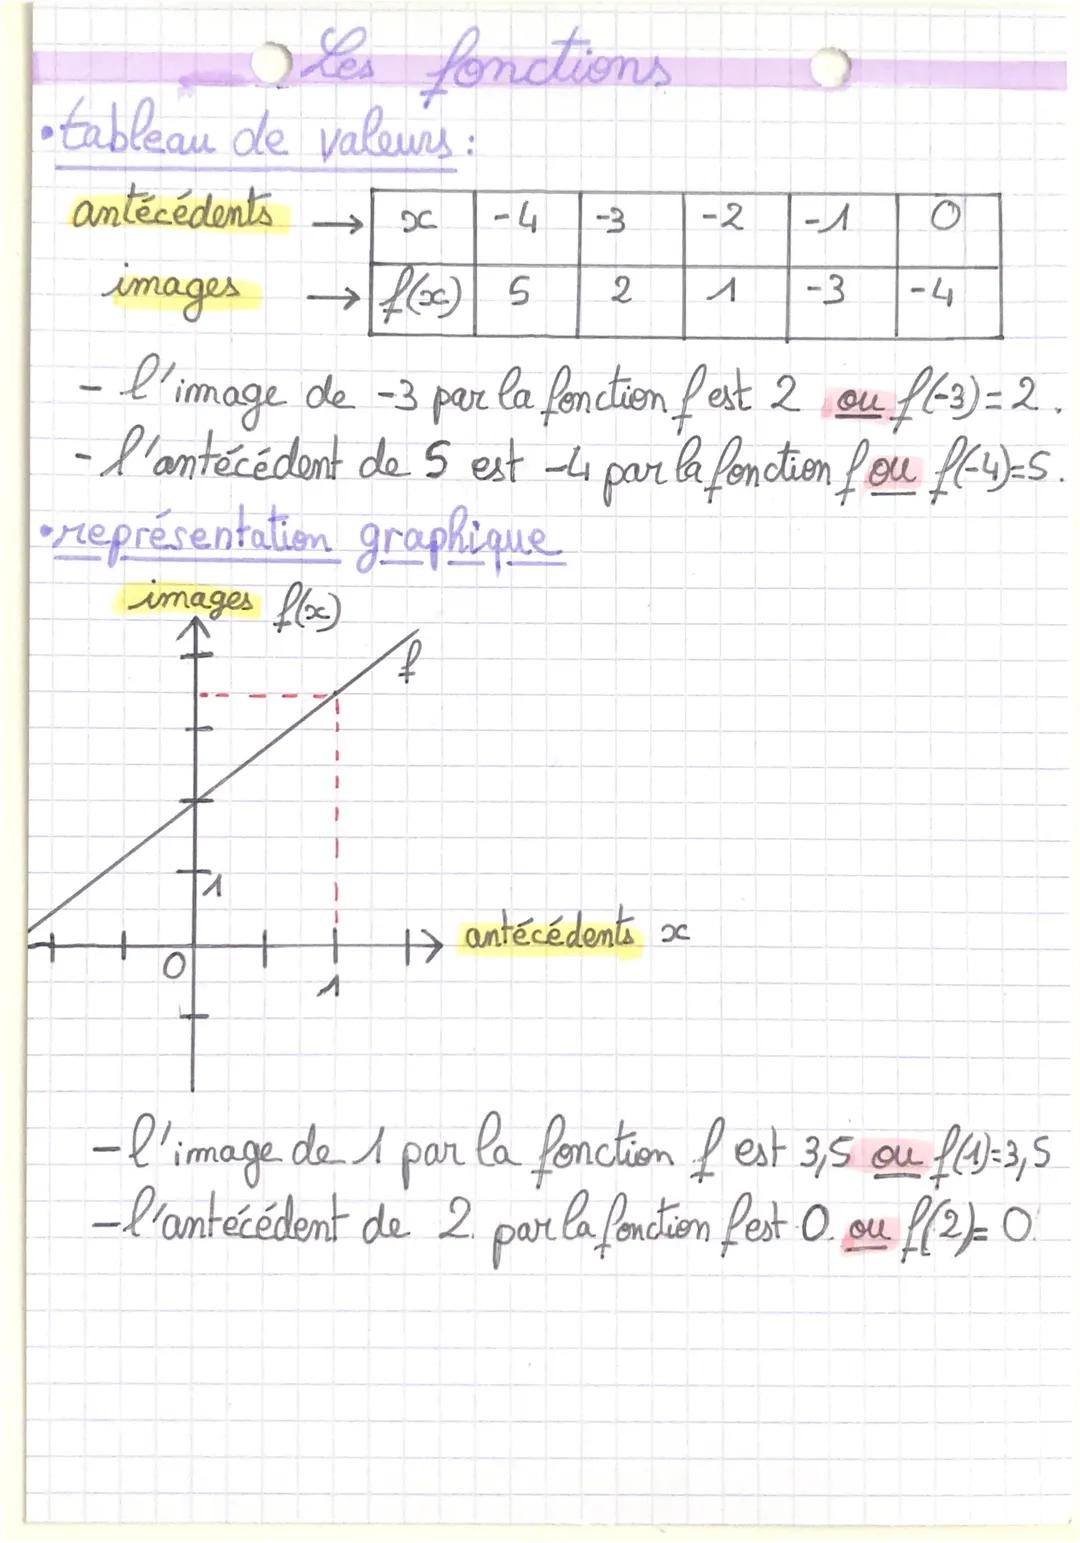 Les fonctions
• tableau de valeurs :
antécédents → x -4 -3 -2 -1 0
images → f(x) 5 2 1 -3 -4
- l'image de -3 par la fonction f est 2 ou f(-3)=2.
- l'antécédent de 5 est -4 par la fonction f ou f(-4)=5.
• représentation graphique
images f(x)
f
1
antécédents x
0
1
- l'image de 1 par la fonction f est 3,5 ou f(1)=3,5
- l'antécédent de 2. par la fonction f est 0. ou f(2)= 0.